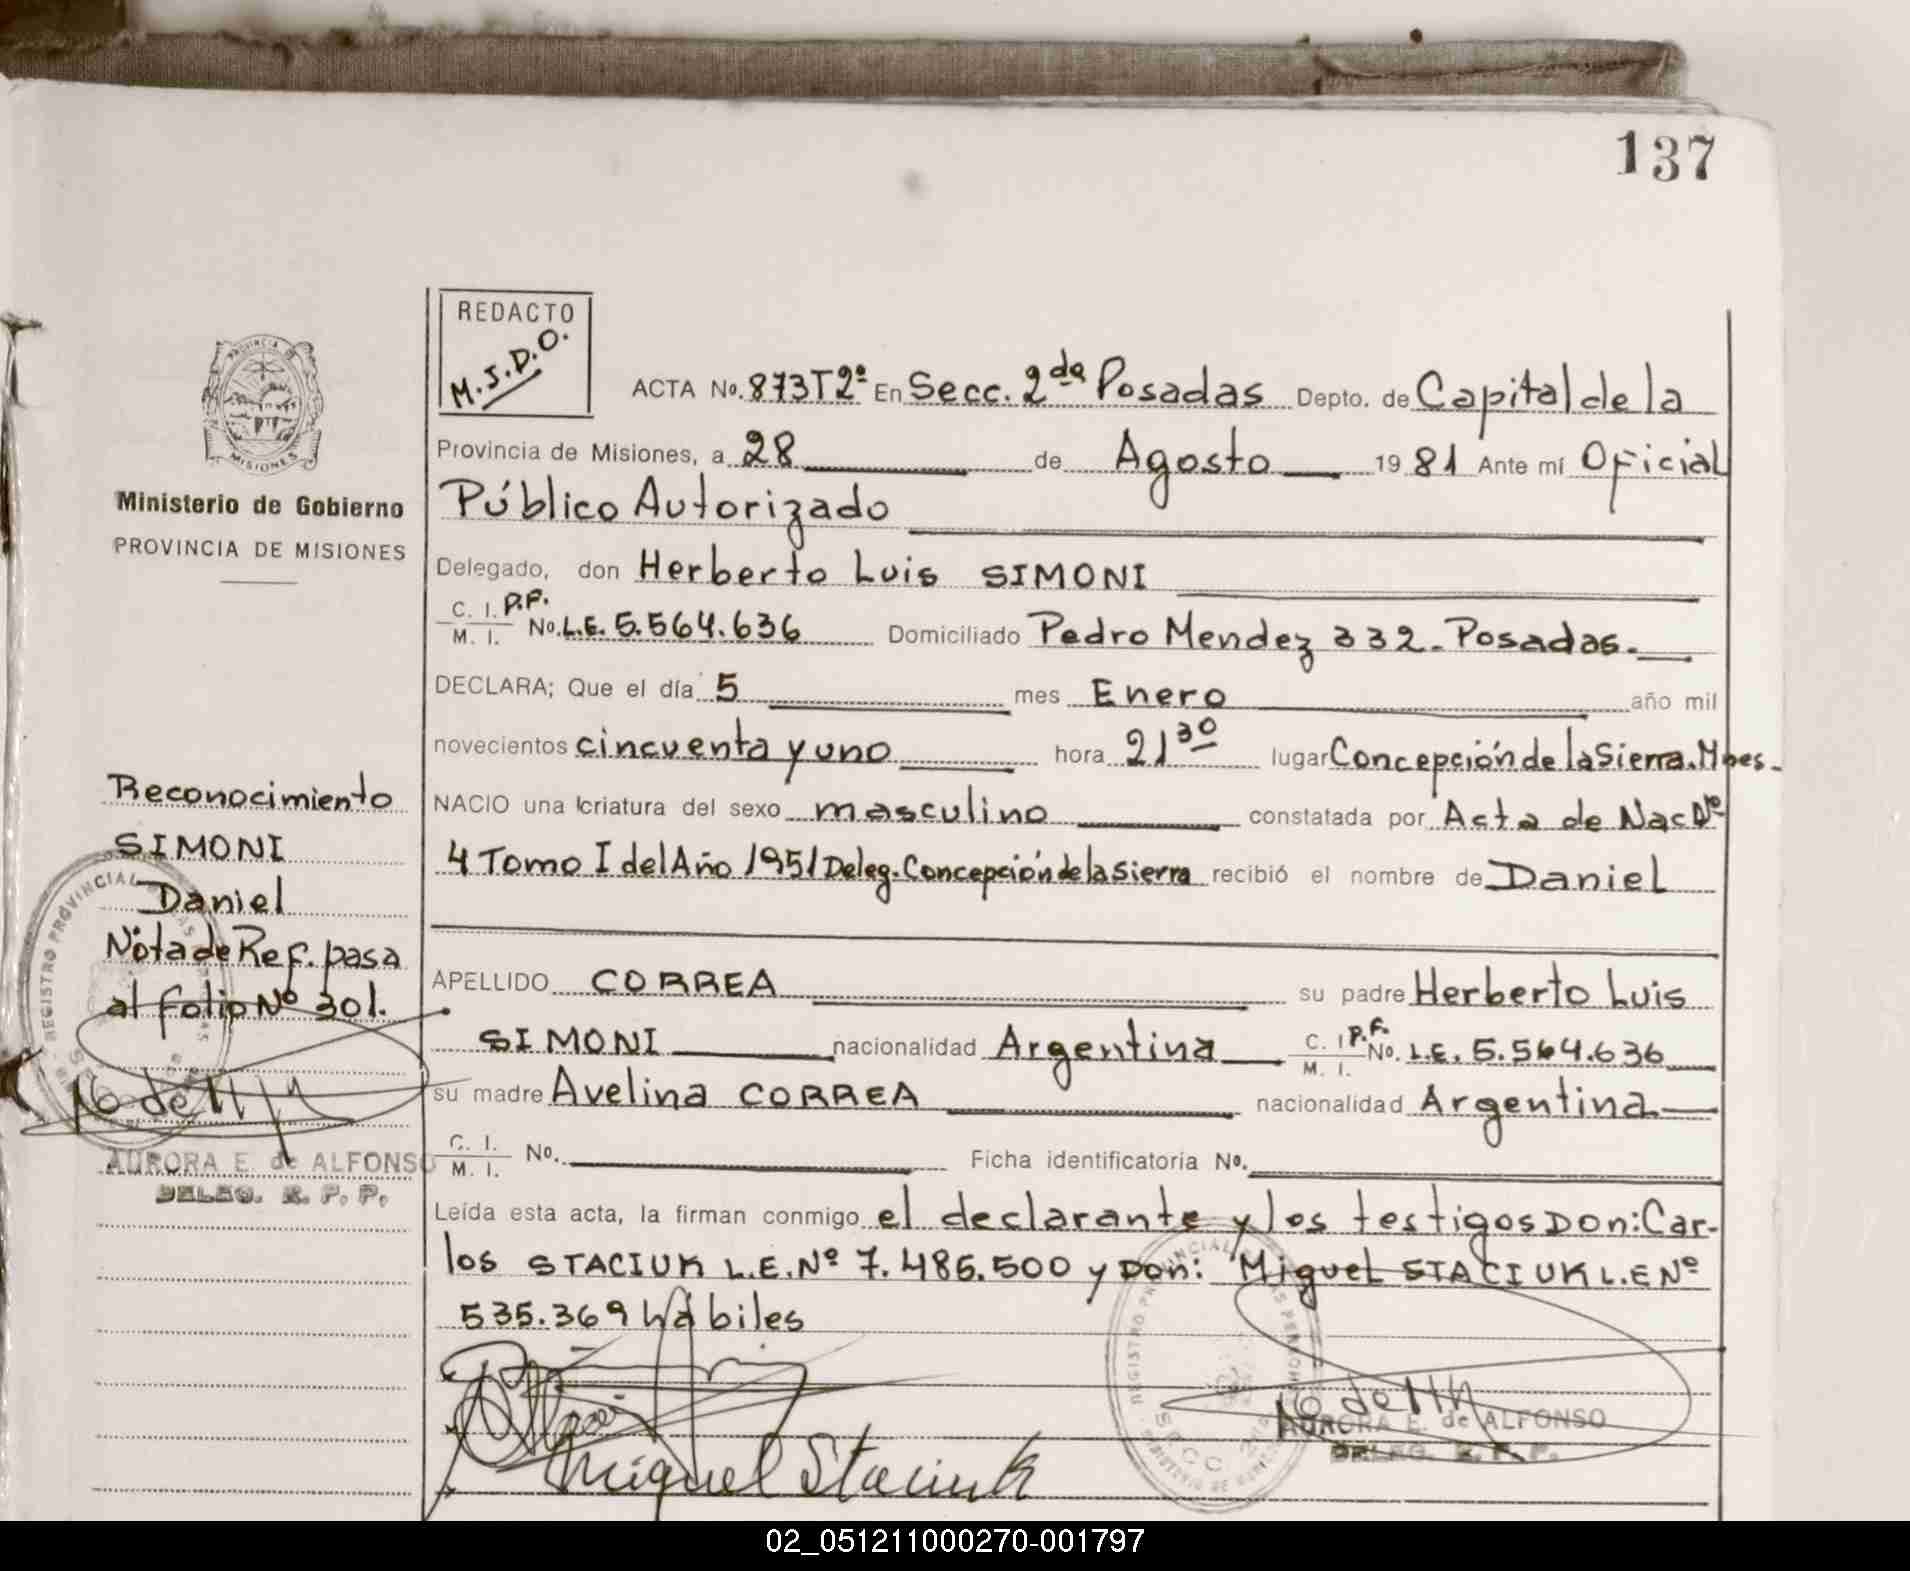 137
REDACTO
M.J.D.O.
PROVINCIA DE
MISIONES
Ministerio de Gobierno
PROVINCIA DE MISIONES
ACTA No. 873T2º En Secc. 2da Posadas Depto. de Capital de la
Provincia de Misiones, a 28 de Agosto 1981 Ante mí Oficial
Público Autorizado
Delegado, don Herberto Luis SIMONI
C. I. P.F.
M. I. No. L.E. 5.564.636 Domiciliado Pedro Mendez 332_Posadas.
DECLARA; Que el día 5 mes Enero año mil
novecientos cincuenta y uno hora 21 30 lugar Concepción de la Sierra. Mnes.
NACIO una criatura del sexo masculino constatada por Acta de Nac Nº
4 Tomo I del Año 1951 Deleg. Concepción de la Sierra recibió el nombre de Daniel
APELLIDO CORREA su padre Herberto Luis
SIMONI nacionalidad Argentina C. I. P.F. M. I. No. L.E. 5.564.636
su madre Avelina CORREA nacionalidad Argentina
C. I. M. I. No. Ficha identificatoria No.
Leída esta acta, la firman conmigo el declarante y los testigos Don: Car-
los STACIUK L.E. Nº 7.485.500 y Don: Miguel STACIUK L.E Nº
535.369 hábiles
Miguel Staciuk
AURORA E. de ALFONSO
DELEG. R. P. P.
Reconocimiento
SIMONI
Daniel
Nota de Ref. pasa
al folio Nº 301.
AURORA E. de ALFONSO
DELEG. R. P. P.
02_051211000270-001797